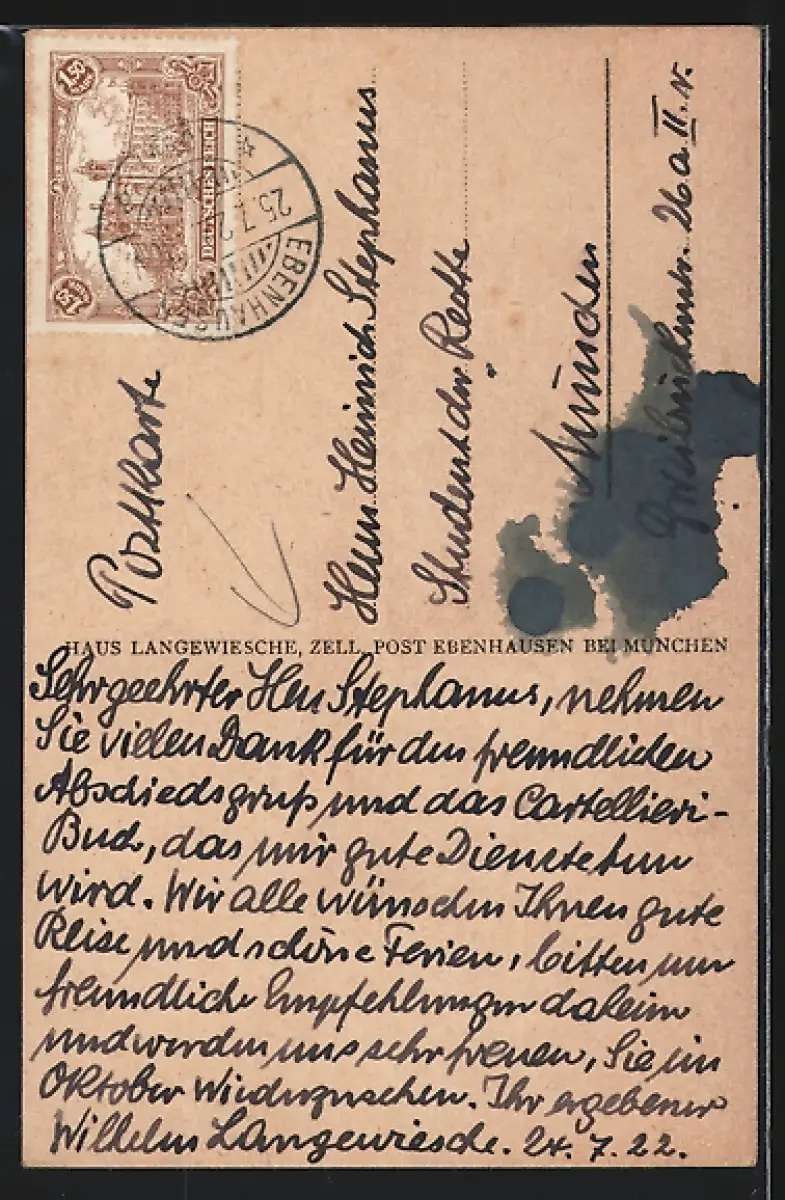 1,50
DEUTSCHES REICH
1,50
EBENHAUSEN
25.7.2
Postkarte
Herrn Heinrich Stephanus
Student der Rechte
München
26a II. r.
HAUS LANGEWIESCHE, ZELL, POST EBENHAUSEN BEI MÜNCHEN
Sehr geehrter Herr Stephanus, nehmen
Sie vielen Dank für den freundlichen
Abschiedsgruß und das Cartellieri-
Buch, das mir gute Dienste tun
wird. Wir alle wünschen Ihnen gute
Reise und schöne Ferien, bitten um
freundliche Empfehlungen daheim
und werden uns sehr freuen, Sie im
Oktober wiederzusehen. Ihr ergebener
Wilhelm Langewiesche. 24.7.22.